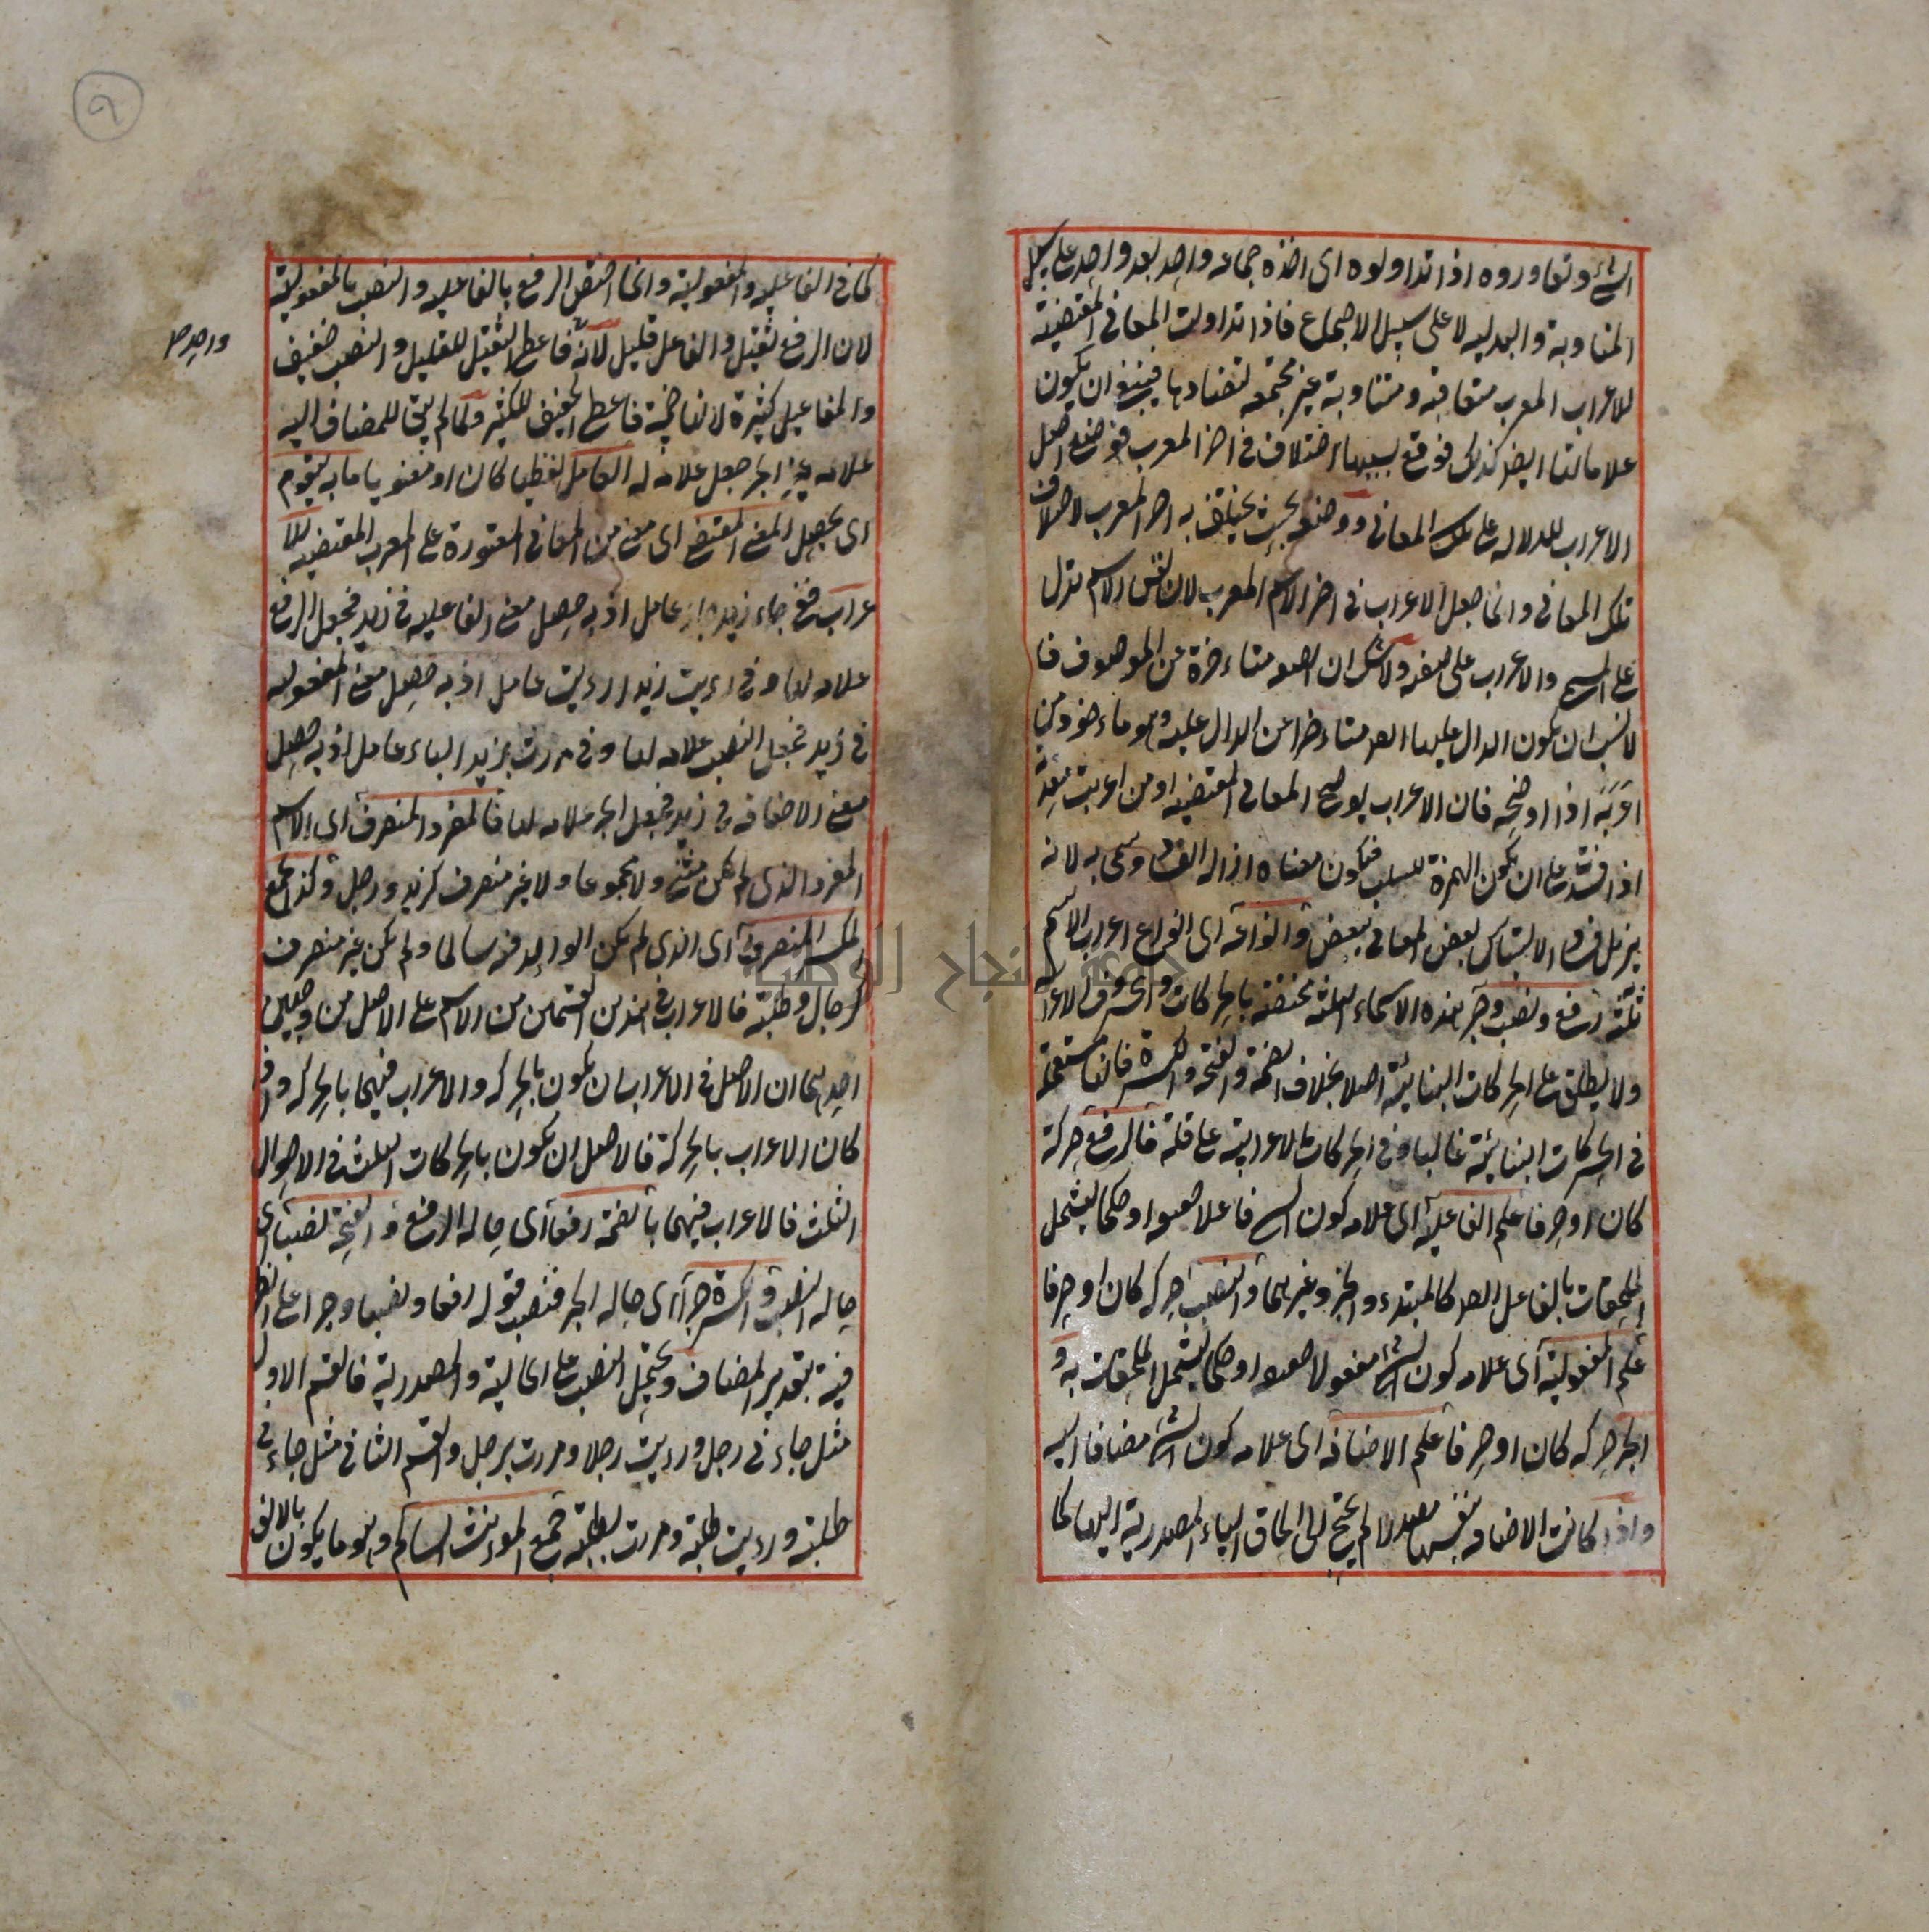 الشئ وتعاوروه اذا تداولوه اى اخذه جماعه واحد بعد واحد على سبيل
المناوبة والبدليه لا على سبيل الاجتماع فاذا تداولت المعانى المقتضية
للاعراب المعرب متعاقبة ومتناوبة غير مجتمعه لتضادها فينبغى ان يكون
علاماتها ايضا كذلك فوقع بسببها اختلاف فى اخر المعرب فوضع اصل
الاعراب للدلاله على تلك المعانى ووضعه بحيث يختلف به اخر المعرب لاختلاف
تلك المعانى وانما جعل الاعراب فى اخر الاسم المعرب لان نفس الاسم تدل
على المسمى والاعراب على صفته ولا شك ان الصفه متاءخرة عن الموصوف فا
لانسب ان يكون الدال عليها ايضا متاءخرا عن الدال عليه وهو ماءخوذ من
اعربه اذا اوضحه فان الاعراب يوضح المعانى المقتضيه او من اعربت معدته
اذا فسدت على ان يكون الهمزة للسلب فيكون معناه ازاله الفساد وسمى به لانه
يزيل فساد الالتباس بعض المعانى ببعض وانواعه اى انواع اعراب الاسم
ثلثة رفع ونصب وجر هذه الاسماء الثلثه مختصة بالحركات والحروف الاعرا
ولا يطلق على الحركات البنائية اصلا بخلاف الضمة والفتحة والكسرة فانها مستعملة
فى الحركات البنائية غالبا وفى الحركات الاعرابية على قلة فالرفع حركة
كان او حرفا علم الفاعلية اى علامه كون الشئ فاعلا حقيقة او حكما ليشتمل
الملحقات بالفاعل ايضا كالمبتدء والخبر وغيرهما والنصب حركه كان او حرفا
علم المفعولية اى علامه كون الشئ مفعولا حقيقة او حكما ليشتمل الملحقات به و
الجر حركه كان او حرفا علم الاضافه اى علامه كون الشئ مضافا اليه
واذا كانت الاضافه بنفسها مصدرا لم يحتج الى الحاق الياء المصدرية اليها كما
كما فى الفاعليه والمفعولية وانما اختص الرفع بالفاعليه والنصب بالمفعولية
لان الرفع ثقيل والفاعل قليل لانه فاعطى الثقيل للقليل والنصب خفيف
واحد صح
والمفاعيل كثيرة لانها خمسة فاعطى الخفيف للكثير ولما لم يبق للمضاف اليه
علامه غير الجر جعل علامه له العامل لفظيا كان او معنويا ما به يتقوم
اى يحصل المعنى المقتضى اى معنى من المعانى المعتورة على المعرب المقتضيه للا
عراب ففى جاء زيد جاء عامل اذ به حصل معنى الفاعليه فى زيد فجعل الرفع
علامه لها وفى رءيت زيدا رءيت عامل اذ به حصل معنى المفعوليه
فى زيد فجعل النصب علامه لها وفى مررت بزيد الباء عامل اذ به حصل
معنى الاضافه فى زيد فجعل الجر علامه لها فالمفرد المنصرف اى الاسم
المفرد الذى لم يكن مثنى ولا مجموعا ولا غير منصرف كزيد ورجل وكذا الجمع
المكسر المنصرف اى الذى لم يكن الواحد فيه سالما ولم يكن غير منصرف
كرجال وطلبة فالاعراب فى هذين القسمين من الاسم على الاصل من وجهين
احدهما ان الاصل فى الاعراب ان يكون بالحركه والاعراب فيهما بالحركه و
كان الاعراب بالحركة فالاصل ان يكون بالحركات الثلث فى الاحوال
الثلث فالاعراب فيهما بالضمة رفعا اى حاله الرفع والفتحة نصبا اى
حاله النصب والكسرة جرا اى حاله الجر فنصب قوله رفعا ونصبا وجرا على الظر
فية بتقدير المضاف ويحتمل النصب على الحالية والمصدرية فالقسم الاول
مثل جاءنى رجل ورءيت رجلا ومررت برجل والقسم الثانى مثل جاءنى
طلبة ورءيت طلبة ومررت بطلبة جمع المؤنث السالم وهو ما يكون بالالف